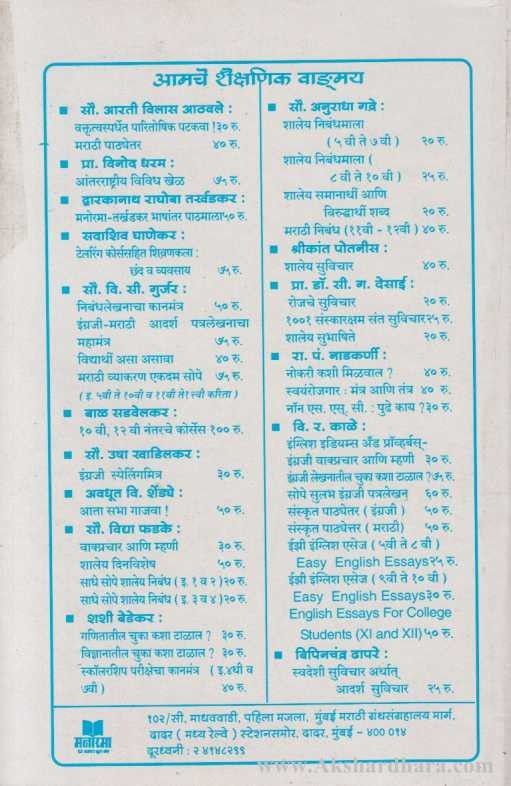 आमचे शैक्षणिक वाङ्मय
■ सौ. आरती विलास आठवले :
वक्तृत्वस्पर्धेत पारितोषिक पटकवा !३० रु.
मराठी पाठ्येतर ४० रु.
■ प्रा. विनोद धरम :
आंतरराष्ट्रीय विविध खेळ ७५ रु.
■ द्वारकानाथ राघोबा तर्खडकर :
मनोरमा-तर्खडकर भाषांतर पाठमाला५० रु.
■ सदाशिव घाणेकर :
टेलरिंग कोर्ससहित शिवणकला :
छंद व व्यवसाय ७५ रु.
■ सौ. वि. सी. गुर्जर :
निबंधलेखनाचा कानमंत्र ५० रु.
इंग्रजी-मराठी आदर्श पत्रलेखनाचा
महामंत्र ७५ रु.
विद्यार्थी असा असावा ४० रु.
मराठी व्याकरण एकदम सोपे ७५ रु.
( इ. ५वी ते १०वी व ११वी ते१२वी करिता )
■ बाळ सडवेलकर :
१० वी, १२ वी नंतरचे कोर्सेस १०० रु.
■ सौ. उषा खाडिलकर :
इंग्रजी स्पेलिंगमित्र ३० रु.
■ अवधूत वि. शेंड्ये :
आता सभा गाजवा ! ५० रु.
■ सौ. विद्या फडके :
वाक्प्रचार आणि म्हणी ३० रु.
शालेय दिनविशेष ५० रु.
साधे सोपे शालेय निबंध ( इ. १ व २ )२० रु.
साधे सोपे शालेय निबंध ( इ. ३ व ४ )२० रु.
■ शशी बेडेकर :
गणितातील चुका कशा टाळाल ? ३० रु.
विज्ञानातील चुका कशा टाळाल ? ३० रु.
स्कॉलरशिप परीक्षेचा कानमंत्र ( इ.४थी व
७वी ) ४० रु.
■ सौ. अनुराधा गद्रे :
शालेय निबंधमाला
( ५ वी ते ७ वी ) २० रु.
शालेय निबंधमाला (
८ वी ते १० वी ) २५ रु.
शालेय समानार्थी आणि
विरुद्धार्थी शब्द २० रु.
मराठी निबंध (११वी - १२वी ) ४० रु.
■ श्रीकांत पोतनीस :
शालेय सुविचार ४० रु.
■ प्रा. डॉ. सी. ग. देसाई :
रोजचे सुविचार २० रु.
१००१ संस्कारक्षम संत सुविचार२५ रु.
शालेय सुभाषिते २० रु.
■ रा. पं. नाडकर्णी :
नोकरी कशी मिळवाल ? ४० रु.
स्वयंरोजगार : मंत्र आणि तंत्र ४० रु.
नॉन एस. एस. सी. : पुढे काय ?३० रु.
■ वि. र. काळे :
इंग्लिश इडियम्स अँड प्रॉव्हर्बस्-
इंग्रजी वाक्प्रचार आणि म्हणी ३० रु.
इंग्रजी लेखनातील चुका कशा टाळाल ?७५ रु.
सोपे सुलभ इंग्रजी पत्रलेखन् ६० रु.
संस्कृत पाठ्येतर ( इंग्रजी ) ५० रु.
संस्कृत पाठ्येत्तर ( मराठी ) ५० रु.
ईझी इंग्लिश एसेज ( ५वी ते ८ वी )
Easy English Essays२५ रु.
ईझी इंग्लिश एसेज ( ९वी ते १० वी )
Easy English Essays३० रु.
English Essays For College
Students (XI and XII) ५० रु.
■ बिपिनचंद्र ढापरे :
स्वदेशी सुविचार अर्थात्
आदर्श सुविचार २५ रु.
मनोरमा
१०२/सी, माधववाडी, पहिला मजला, मुंबई मराठी ग्रंथसंग्रहालय मार्ग,
दादर ( मध्य रेल्वे ) स्टेशनसमोर, दादर, मुंबई - ४०० ०१४
दूरध्वनी : २ ४१४८२९९
www.Akshardhara.com